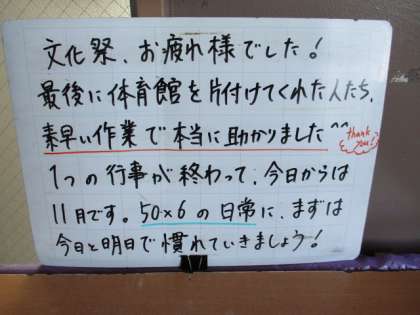 文化祭、お疲れ様でした！
最後に体育館を片付けてくれた人たち、
素早い作業で本当に助かりました^^
thank you!
1つの行事が終わって、今日からは
11月です。50×6の日常に、まずは
今日と明日で慣れていきましょう！